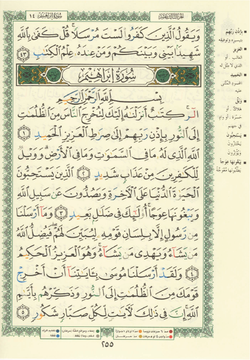 وَيَقُولُ الَّذِينَ كَفَرُوا لَسْتَ مُرْسَلًا قُلْ كَفَىٰ بِاللَّهِ
شَهِيدًا بَيْنِي وَبَيْنَكُمْ وَمَنْ عِنْدَهُ عِلْمُ الْكِتَابِ ﴿٤٣﴾
سُورَةُ إِبْرَاهِيمَ
بِسْمِ اللَّهِ الرَّحْمَٰنِ الرَّحِيمِ
الر كِتَابٌ أَنْزَلْنَاهُ إِلَيْكَ لِتُخْرِجَ النَّاسَ مِنَ الظُّلُمَاتِ
إِلَى النُّورِ بِإِذْنِ رَبِّهِمْ إِلَىٰ صِرَاطِ الْعَزِيزِ الْحَمِيدِ ﴿١﴾
اللَّهِ الَّذِي لَهُ مَا فِي السَّمَاوَاتِ وَمَا فِي الْأَرْضِ وَوَيْلٌ
لِلْكَافِرِينَ مِنْ عَذَابٍ شَدِيدٍ ﴿٢﴾ الَّذِينَ يَسْتَحِبُّونَ
الْحَيَاةَ الدُّنْيَا عَلَى الْآخِرَةِ وَيَصُدُّونَ عَنْ سَبِيلِ اللَّهِ
وَيَبْغُونَهَا عِوَجًا أُولَٰئِكَ فِي ضَلَالٍ بَعِيدٍ ﴿٣﴾ وَمَا أَرْسَلْنَا
مِنْ رَسُولٍ إِلَّا بِلِسَانِ قَوْمِهِ لِيُبَيِّنَ لَهُمْ فَيُضِلُّ اللَّهُ
مَنْ يَشَاءُ وَيَهْدِي مَنْ يَشَاءُ وَهُوَ الْعَزِيزُ الْحَكِيمُ
﴿٤﴾ وَلَقَدْ أَرْسَلْنَا مُوسَىٰ بِآيَاتِنَا أَنْ أَخْرِجْ
قَوْمَكَ مِنَ الظُّلُمَاتِ إِلَى النُّورِ وَذَكِّرْهُمْ بِأَيَّامِ
اللَّهِ إِنَّ فِي ذَٰلِكَ لَآيَاتٍ لِكُلِّ صَبَّارٍ شَكُورٍ ﴿٥﴾
٢٥٥